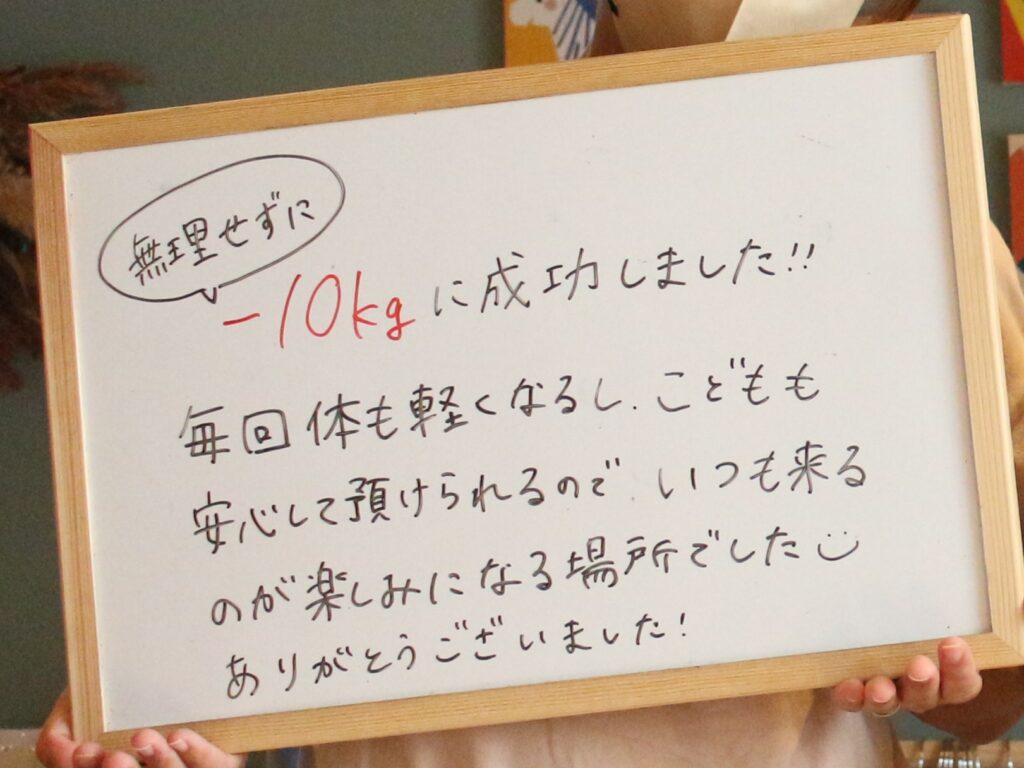 無理せずに
-10kgに成功しました!!
毎回体も軽くなるし、こどもも
安心して預けられるので、いつも来る
のが楽しみになる場所でした
ありがとうございました!